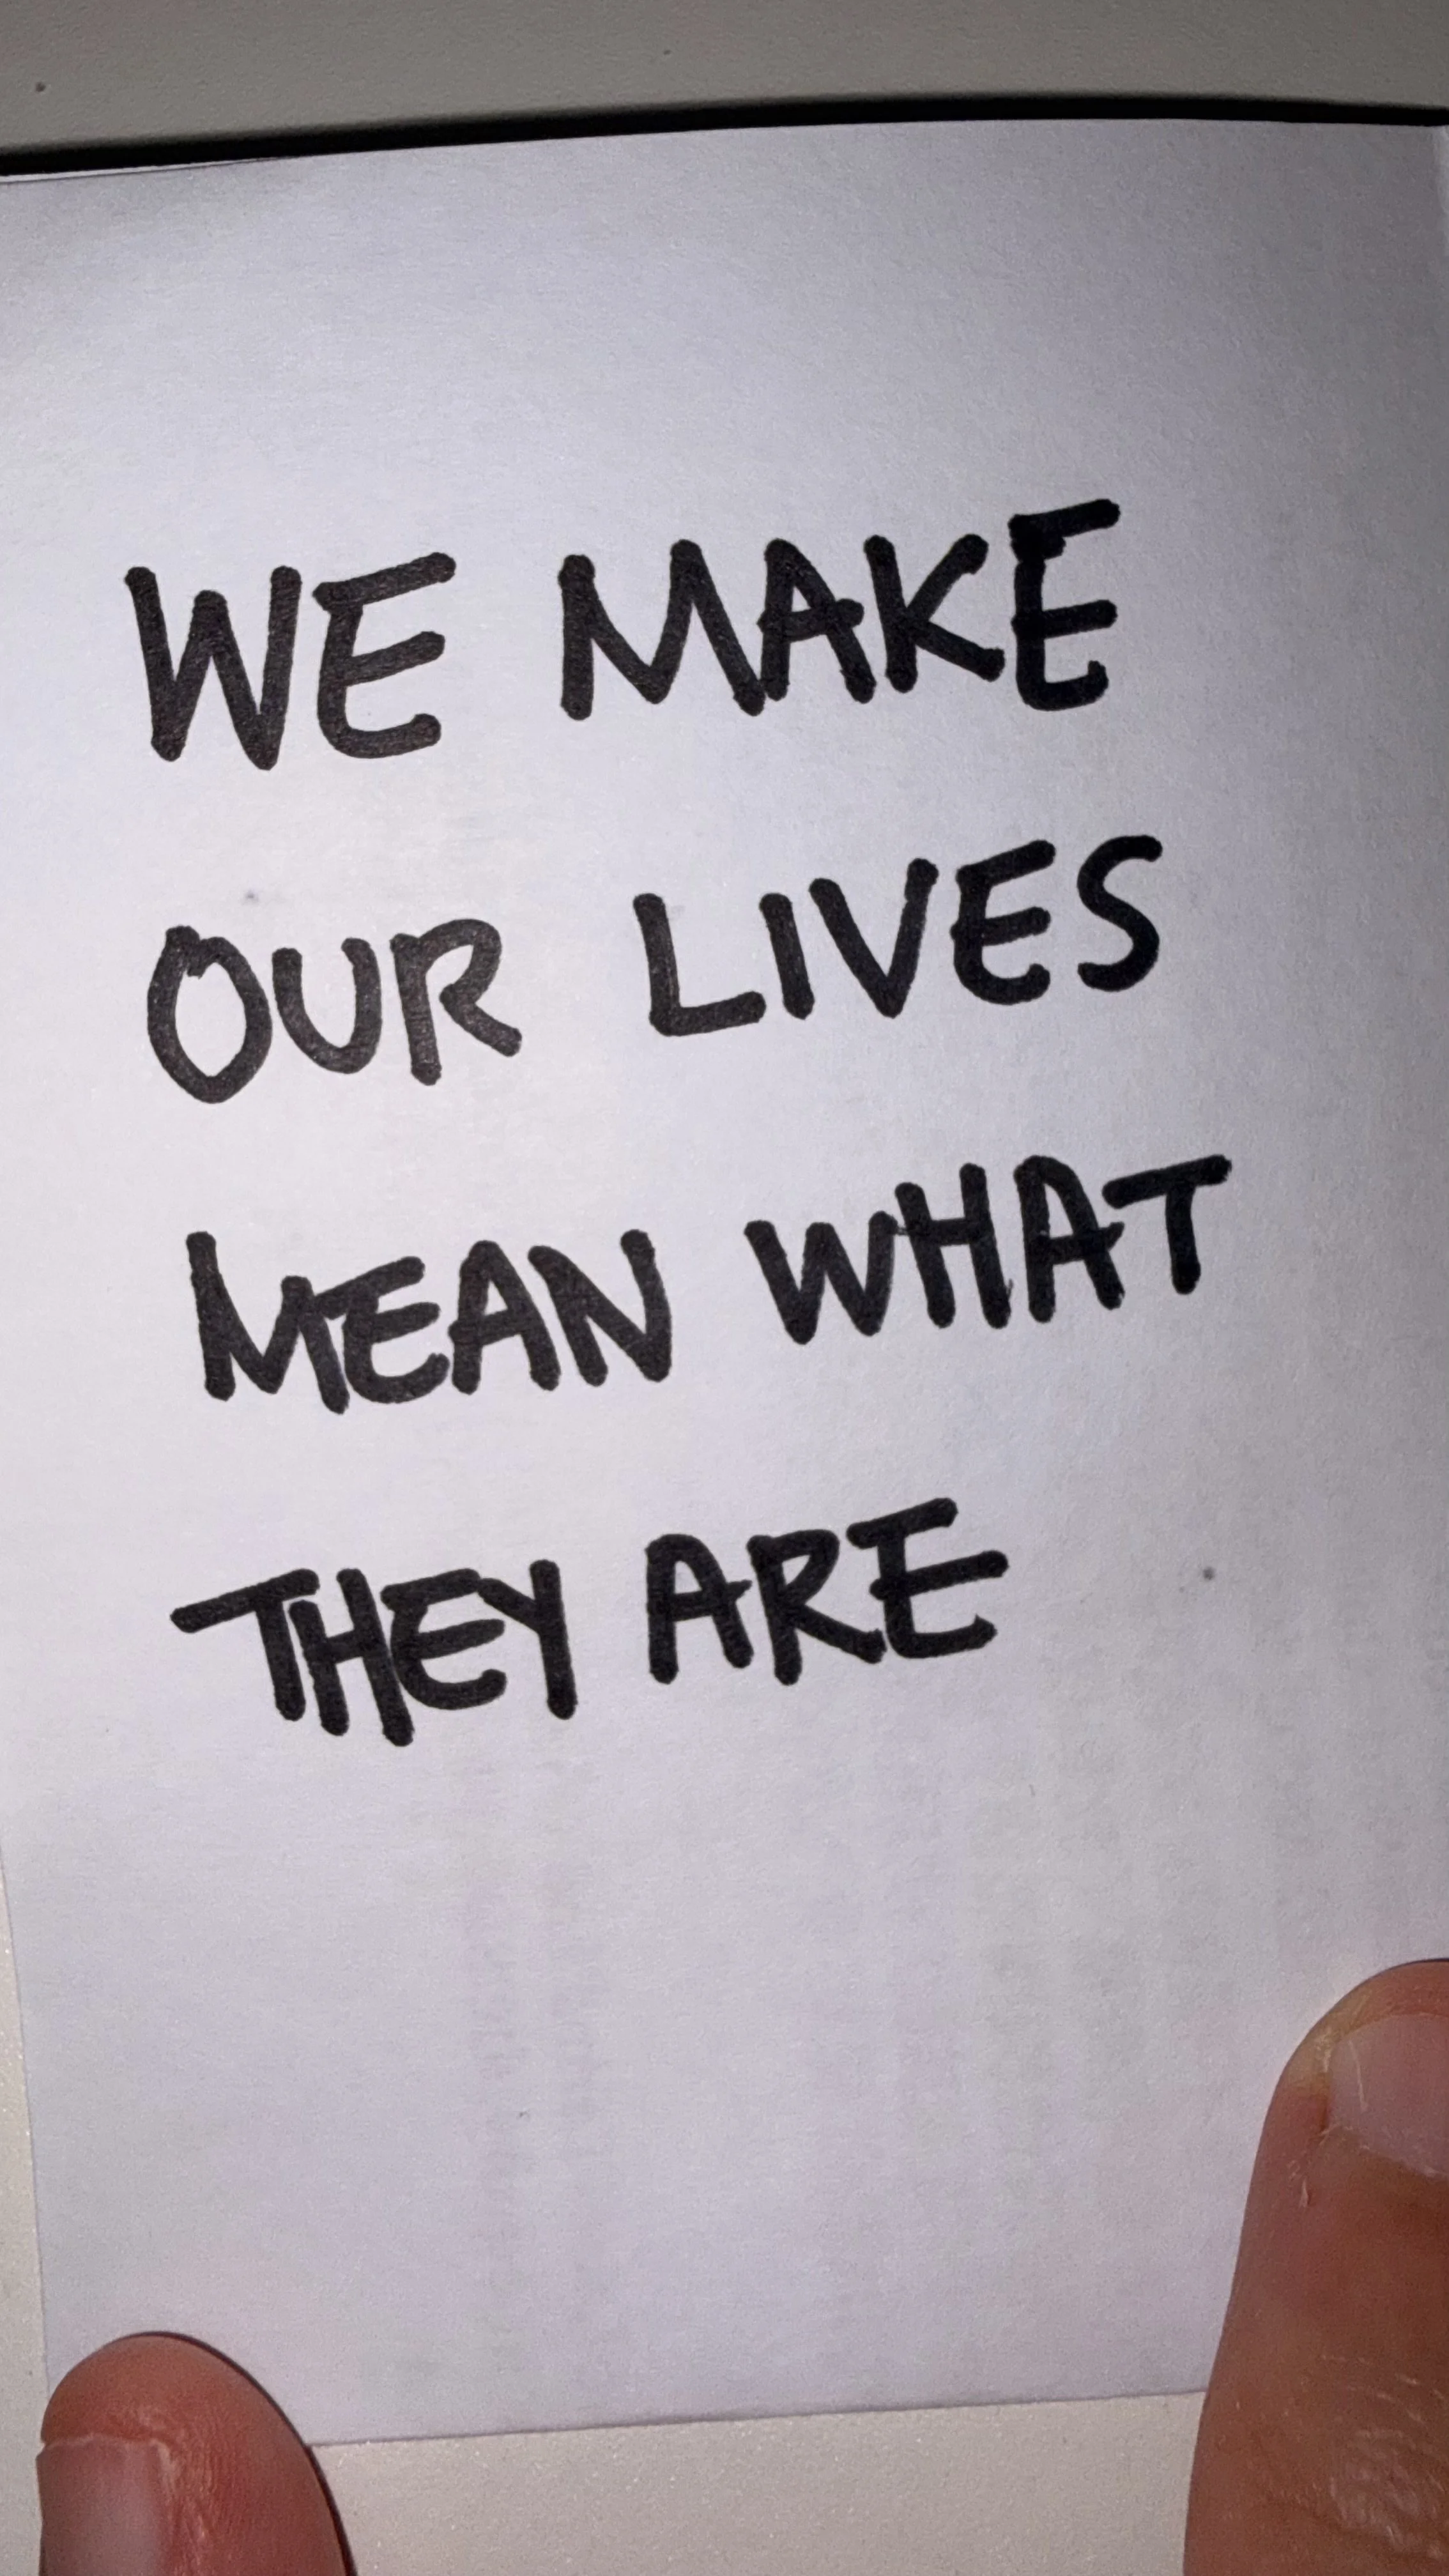 WE MAKE
OUR LIVES
MEAN WHAT
THEY ARE